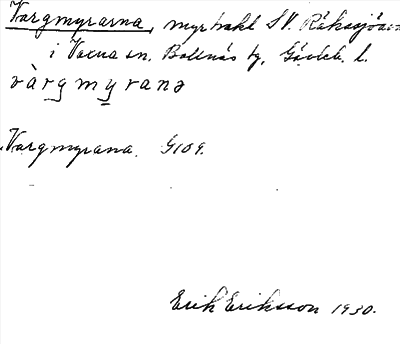 Vargmyrarna, myrtrakt SV. Råksjöarna
i Voxna sn. Bollnäs tg, Gävleb. l.
vàrgmyranə
Vargmyrana. G109.
Erik Eriksson 1930.